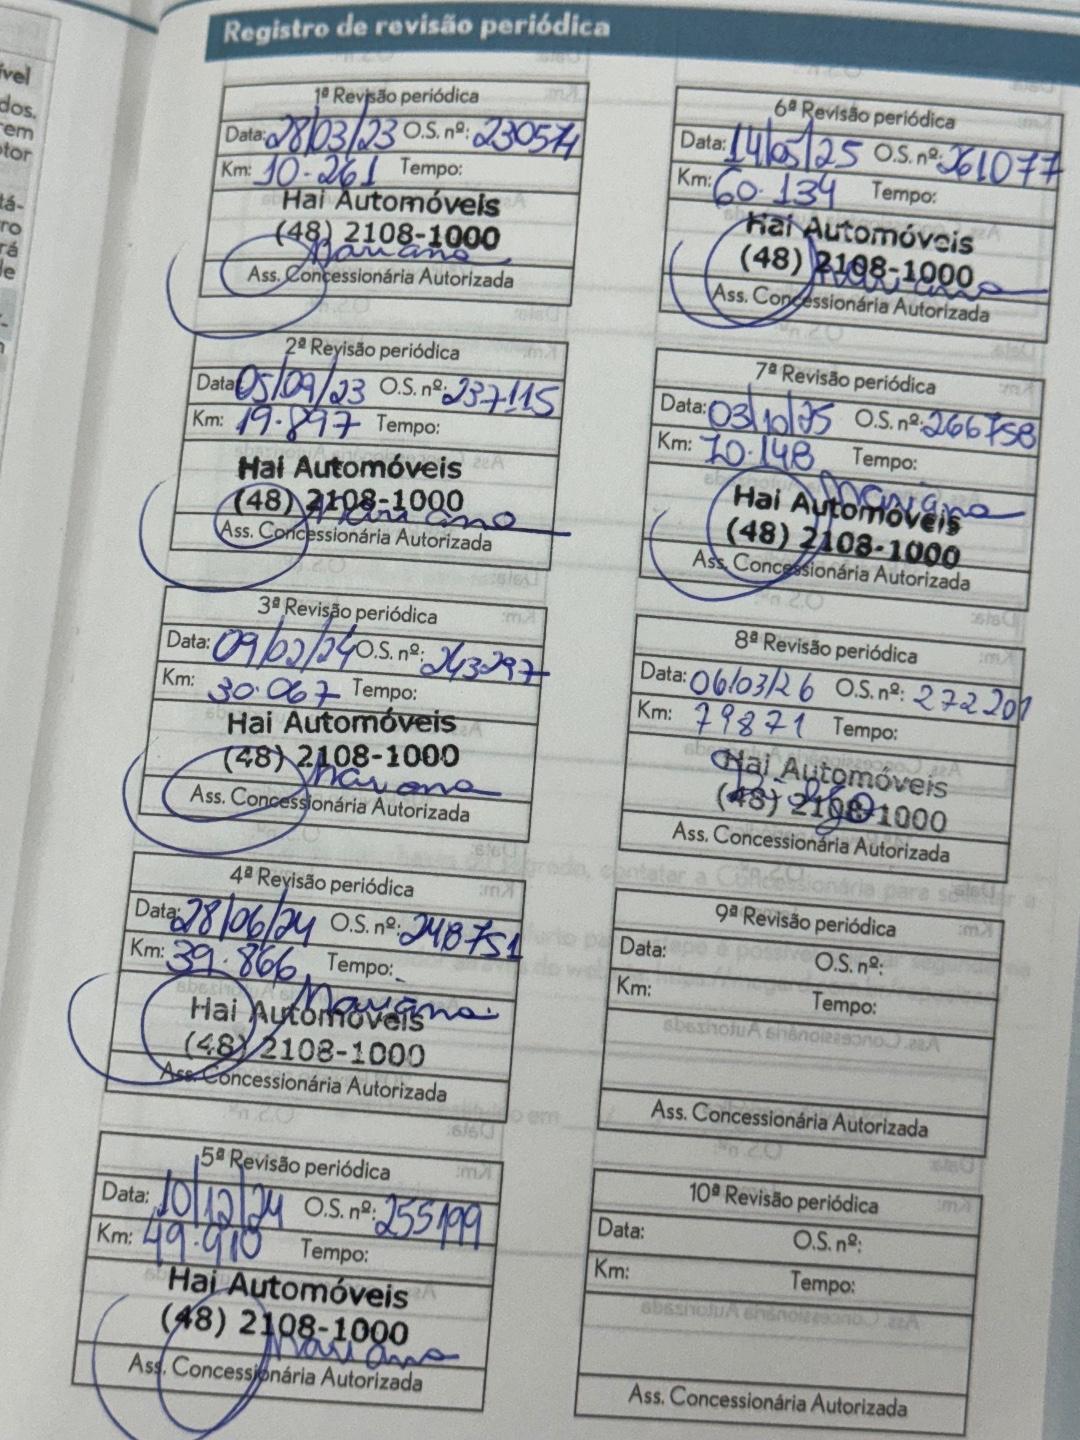 Registro de revisão periódica
1ª Revisão periódica
Data: 28/03/23 O.S. nº: 230574
Km: 10.261 Tempo:
Hai Automóveis
(48) 2108-1000
Mariano
Ass. Concessionária Autorizada
2ª Revisão periódica
Data: 05/09/23 O.S. nº: 237115
Km: 19.897 Tempo:
Hai Automóveis
(48) 2108-1000
Mariano
Ass. Concessionária Autorizada
3ª Revisão periódica
Data: 09/02/24 O.S. nº: 243297
Km: 30.067 Tempo:
Hai Automóveis
(48) 2108-1000
Mariano
Ass. Concessionária Autorizada
4ª Revisão periódica
Data: 28/06/24 O.S. nº: 248751
Km: 39.866 Tempo:
Mariano
Hai Automóveis
(48) 2108-1000
Ass. Concessionária Autorizada
5ª Revisão periódica
Data: 10/12/24 O.S. nº: 255199
Km: 49.910 Tempo:
Hai Automóveis
(48) 2108-1000
Mariano
Ass. Concessionária Autorizada
6ª Revisão periódica
Data: 14/05/25 O.S. nº: 261077
Km: 60.134 Tempo:
Hai Automóveis
(48) 2108-1000
Mariano
Ass. Concessionária Autorizada
7ª Revisão periódica
Data: 03/10/25 O.S. nº: 266758
Km: 70.148 Tempo:
Mariano
Hai Automóveis
(48) 2108-1000
Ass. Concessionária Autorizada
8ª Revisão periódica
Data: 06/03/26 O.S. nº: 272201
Km: 79871 Tempo:
Hai Automóveis
(48) 2108-1000
Ass. Concessionária Autorizada
9ª Revisão periódica
Data: O.S. nº:
Km: Tempo:
Ass. Concessionária Autorizada
10ª Revisão periódica
Data: O.S. nº:
Km: Tempo:
Ass. Concessionária Autorizada